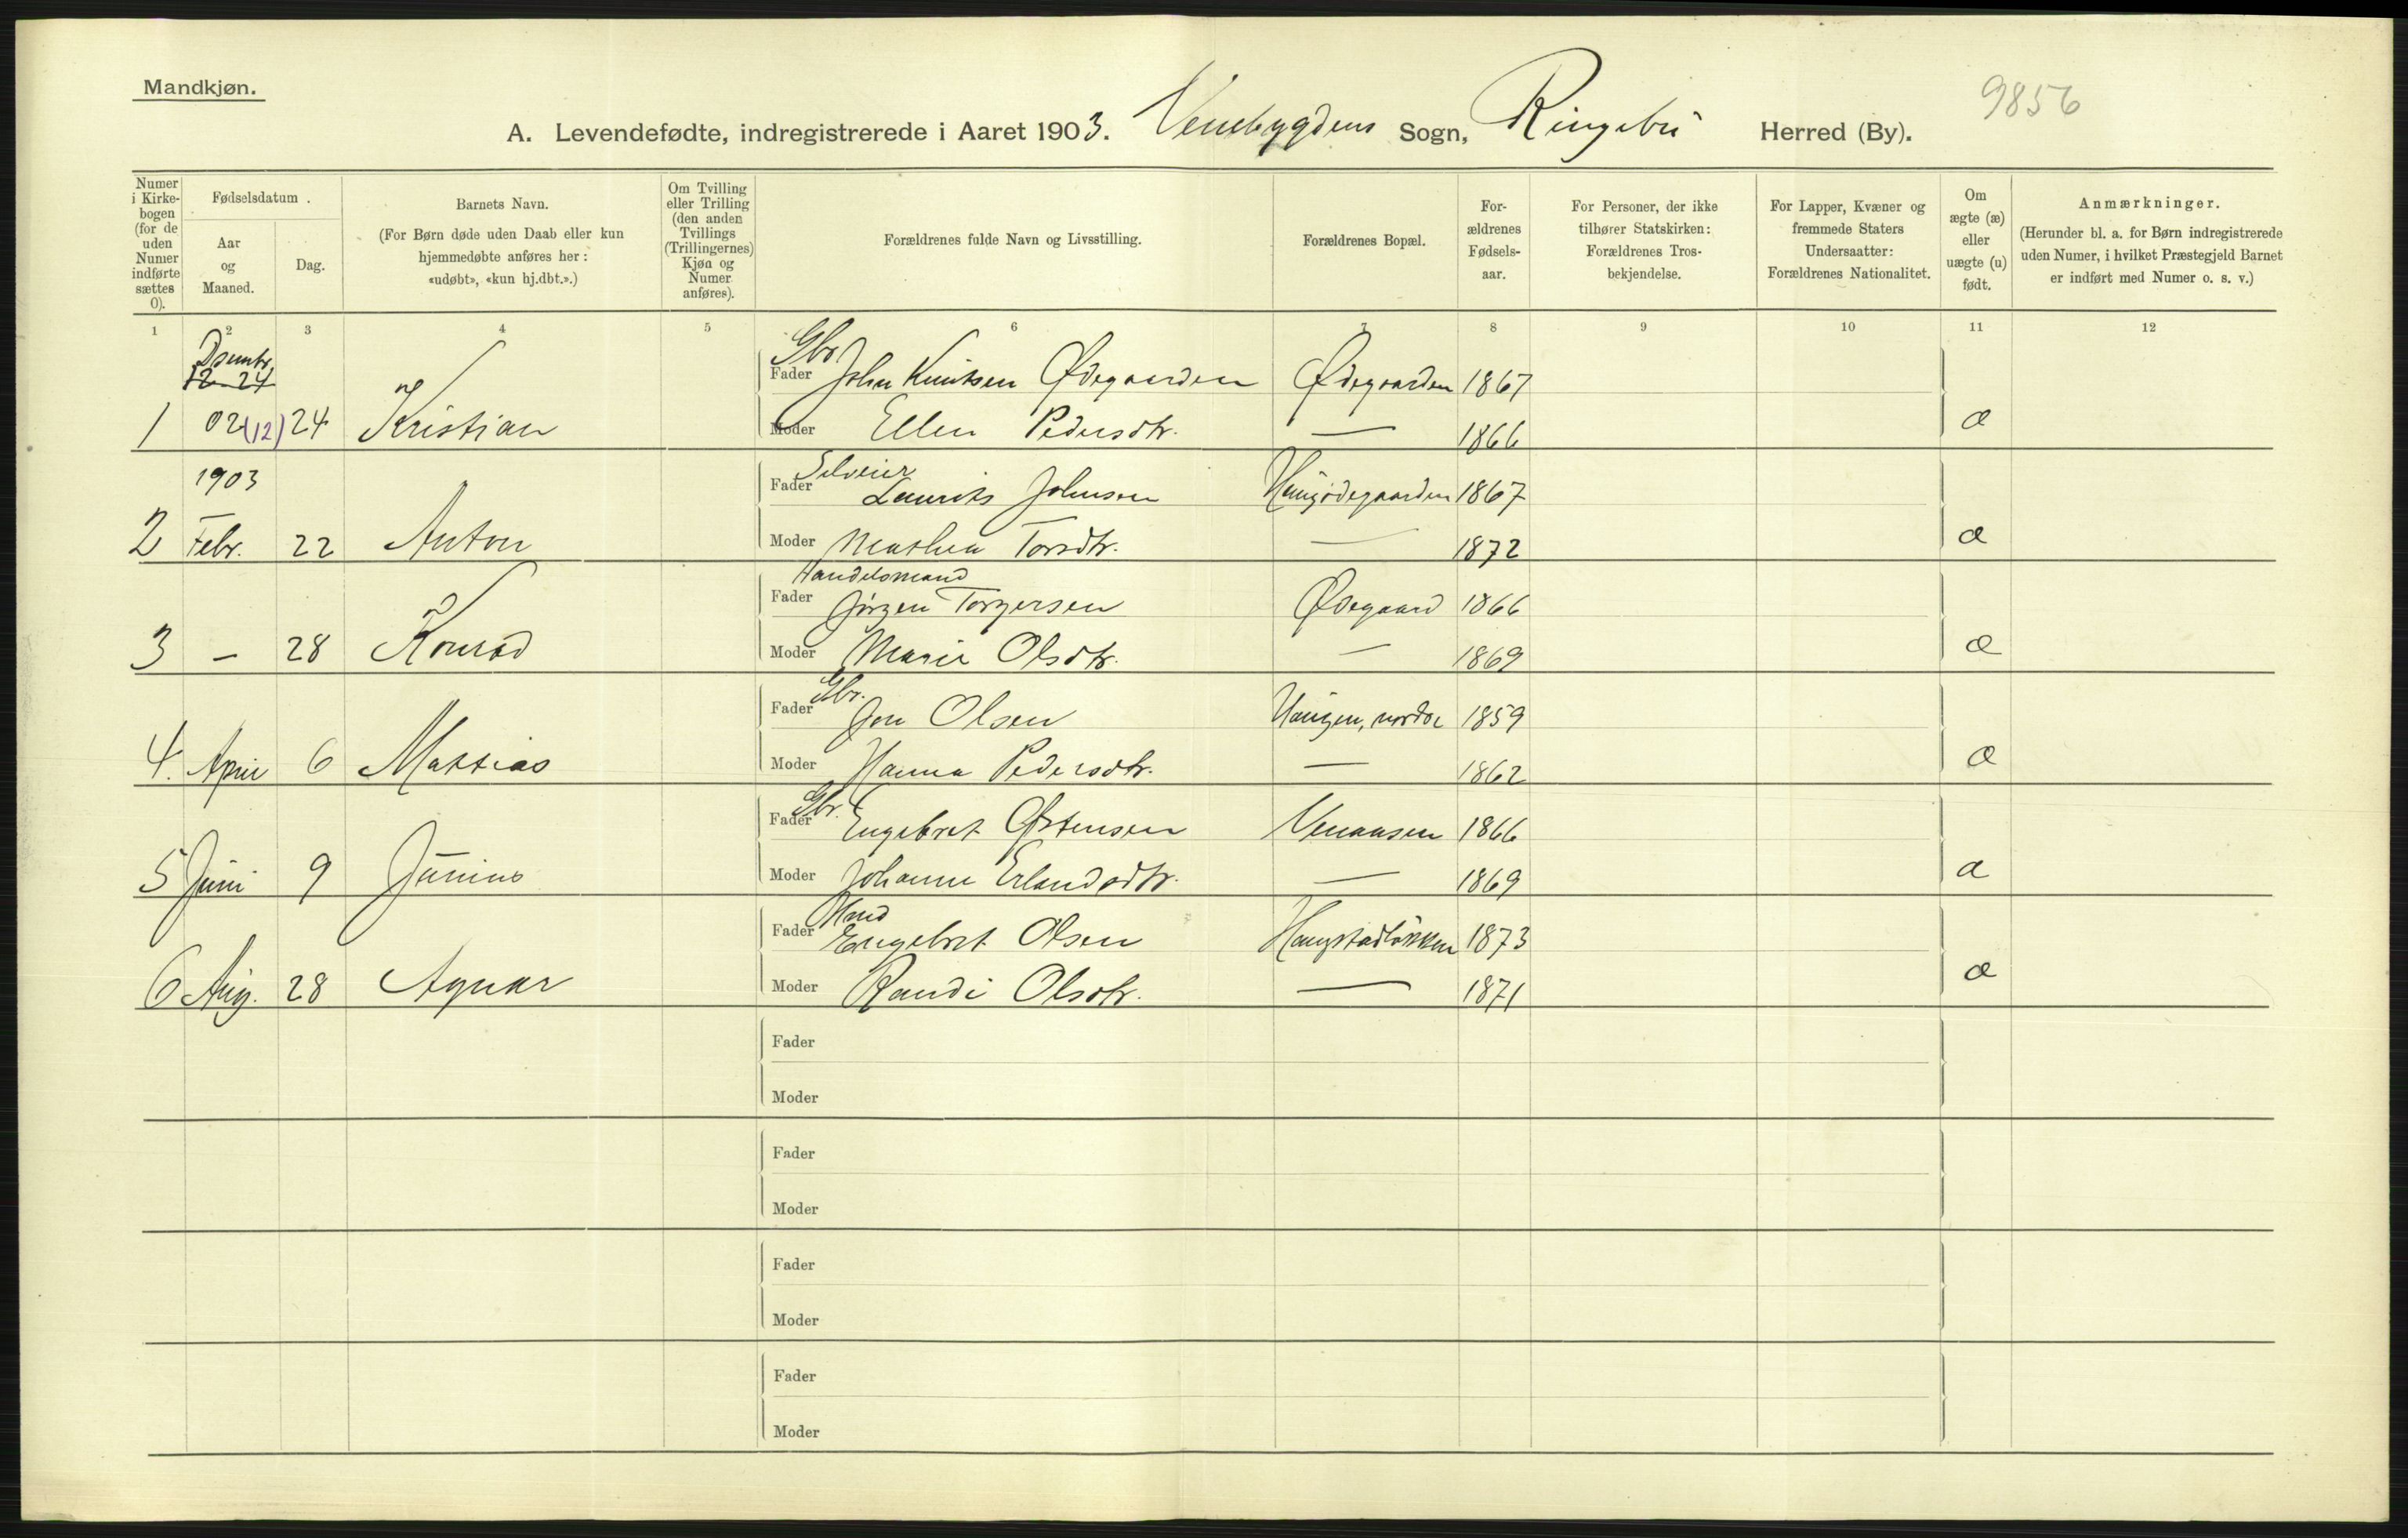 Mandkjøn.
9856
A. Levendefødte, indregistrerede i Aaret 1903. Venebygdens Sogn, Ringebu Herred (By).
Numer i Kirke-bogen (for de uden Numer indførte sættes 0).
Fødselsdatum.
Aar og Maaned.
Dag.
Barnets Navn.
(For Børn døde uden Daab eller kun hjemmedøbte anføres her: «udøbt», «kun hj.dbt.».)
Om Tvilling eller Trilling (den anden Tvillings (Trillingernes) Kjøn og Numer anføres).
Forældrenes fulde Navn og Livsstilling.
Forældrenes Bopæl.
For-ældrenes Fødsels-aar.
For Personer, der ikke tilhører Statskirken: Forældrenes Tros-bekjendelse.
For Lapper, Kvæner og fremmede Staters Undersaatter: Forældrenes Nationalitet.
Om ægte (æ) eller uægte (u) født.
Anmærkninger.
(Herunder bl. a. for Børn indregistrerede uden Numer, i hvilket Præstegjeld Barnet er indført med Numer o. s. v.)
1 2 3 4 5 6 7 8 9 10 11 12
12-24
Gbr
Fader John Knutsen Ødegaarden Ødegaarden 1867
1 02 (12) 24 Kristian Moder Ellen Pedersdtr. — 1866 æ
1903 Selveier
Fader Laurits Johnsen Haugødegaarden 1867
2 Febr. 22 Anton Moder Mathea Torsdtr. — 1872 æ
Handelsmand
Fader Jørgen Torgersen Ødegaard 1866
3 — 28 Konrad Moder Marie Olsdtr. — 1869 æ
Gbr.
Fader Jon Olsen Haugen, nordre 1859
4. April 6 Mattias Moder Hanna Pedersdtr. — 1862 æ
Gbr.
Fader Engebret Østensen Venaasen 1866
5 Juni 9 Junius Moder Johanne Erlandsdtr. — 1869 æ
Fader Engebret Olsen Haugstadløkken 1873
6 Aug. 28 Agnar Moder Randi Olsdtr. — 1871 æ
Fader
Moder
Fader
Moder
Fader
Moder
Fader
Moder